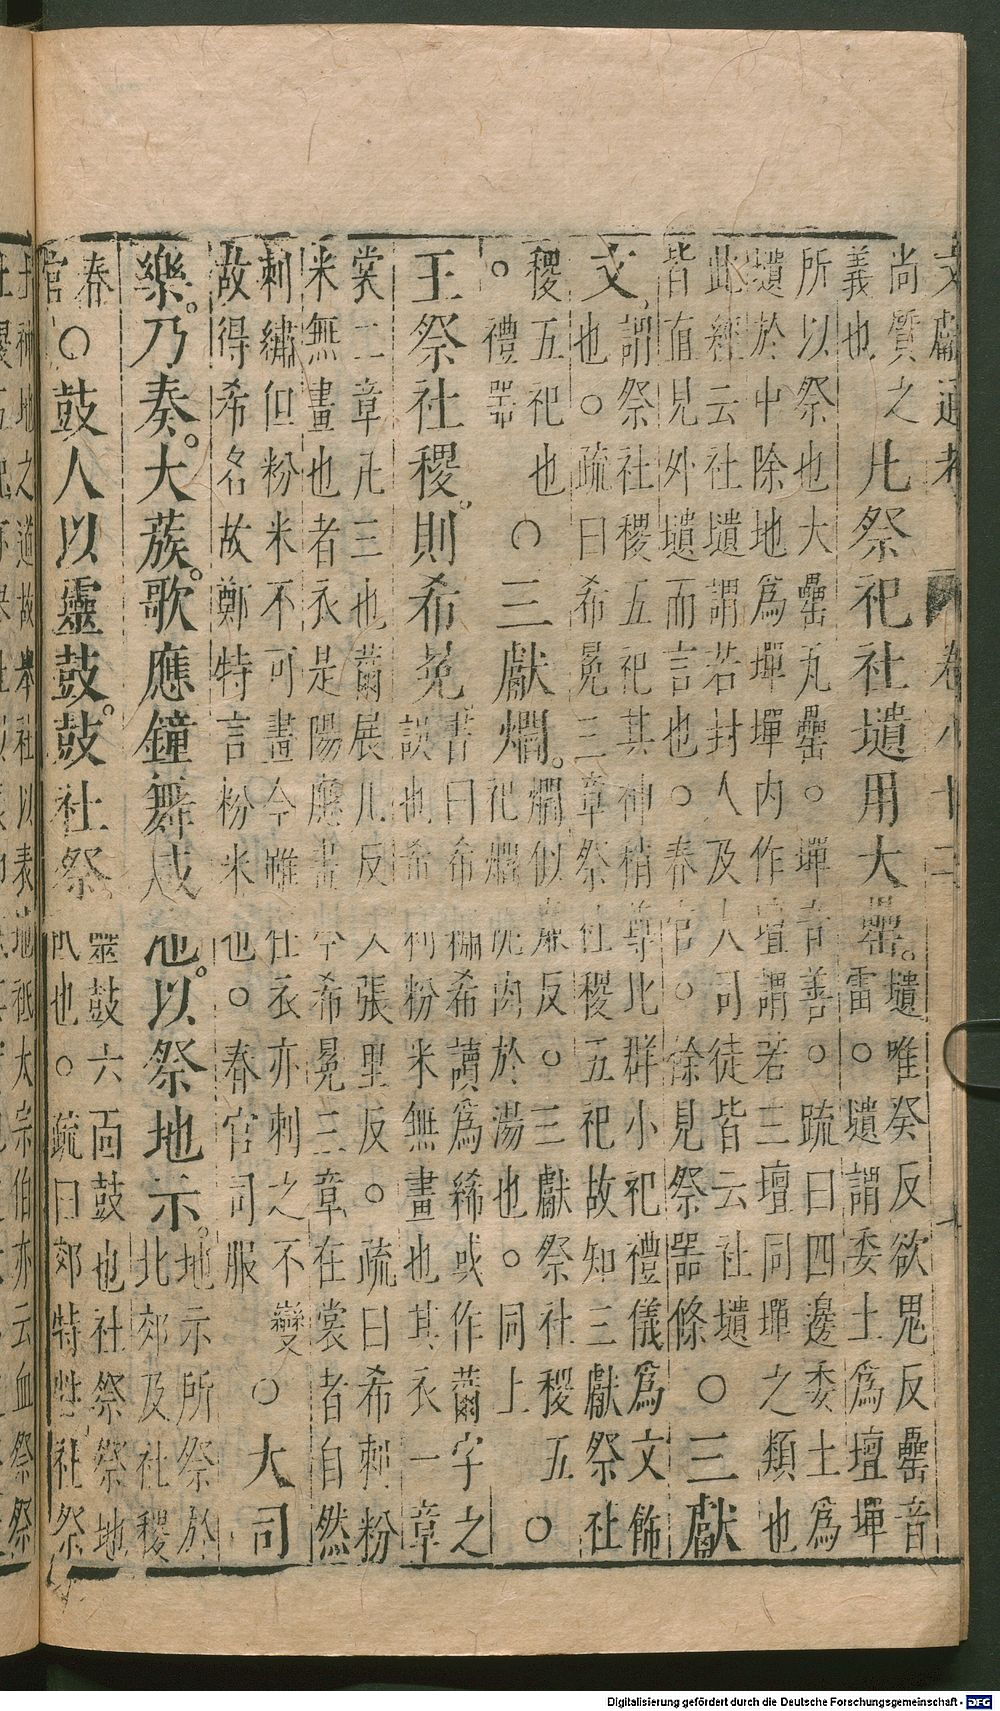 文獻通考 卷八十二 十
尚質之
義也
凡祭祀社壝用大罍。
壝唯癸反欲鬼反罍音
雷○壝謂委土爲壇墠
所以祭也大罍瓦罍○墠音善○疏曰四邊委土爲
壝於中除地爲墠墠内作壇謂若三壇同墠之類也
此經云社壝謂若封人及大司徒皆云社壝
皆直見外壝而言也○春官○餘見祭器條
○三獻
文。
謂祭社稷五祀其神稍尊比群小祀禮儀爲文飾
也○疏曰希冕三章祭社稷五祀故知三獻祭社
稷五祀也
○禮器
○三獻爓。
爓似廉反○三獻祭社稷五
祀爓沈肉於湯也○同上
○
王祭社稷。則希冕
書曰希繡希讀爲絺或作黹字之
誤也希刺粉米無畫也其衣一章
裳二章凡三也黹展几反又張里反○疏曰希刺粉
米無畫也者衣是陽應畫今希冕三章在裳者自然
刺繡但粉米不可畫今雖在衣亦刺之不變
故得希名故鄭特言粉米也○春官司服
○大司
樂。乃奏。大蔟。歌應鐘舞咸池。以祭地示。
地示所祭於
北郊及社稷
春
官
○鼓人以靈鼓。鼓社祭。
靈鼓六面鼓也社祭祭地
祇也○疏曰郊特牲社祭
土神地之道故舉社以表地祇大宗伯亦云血祭祭